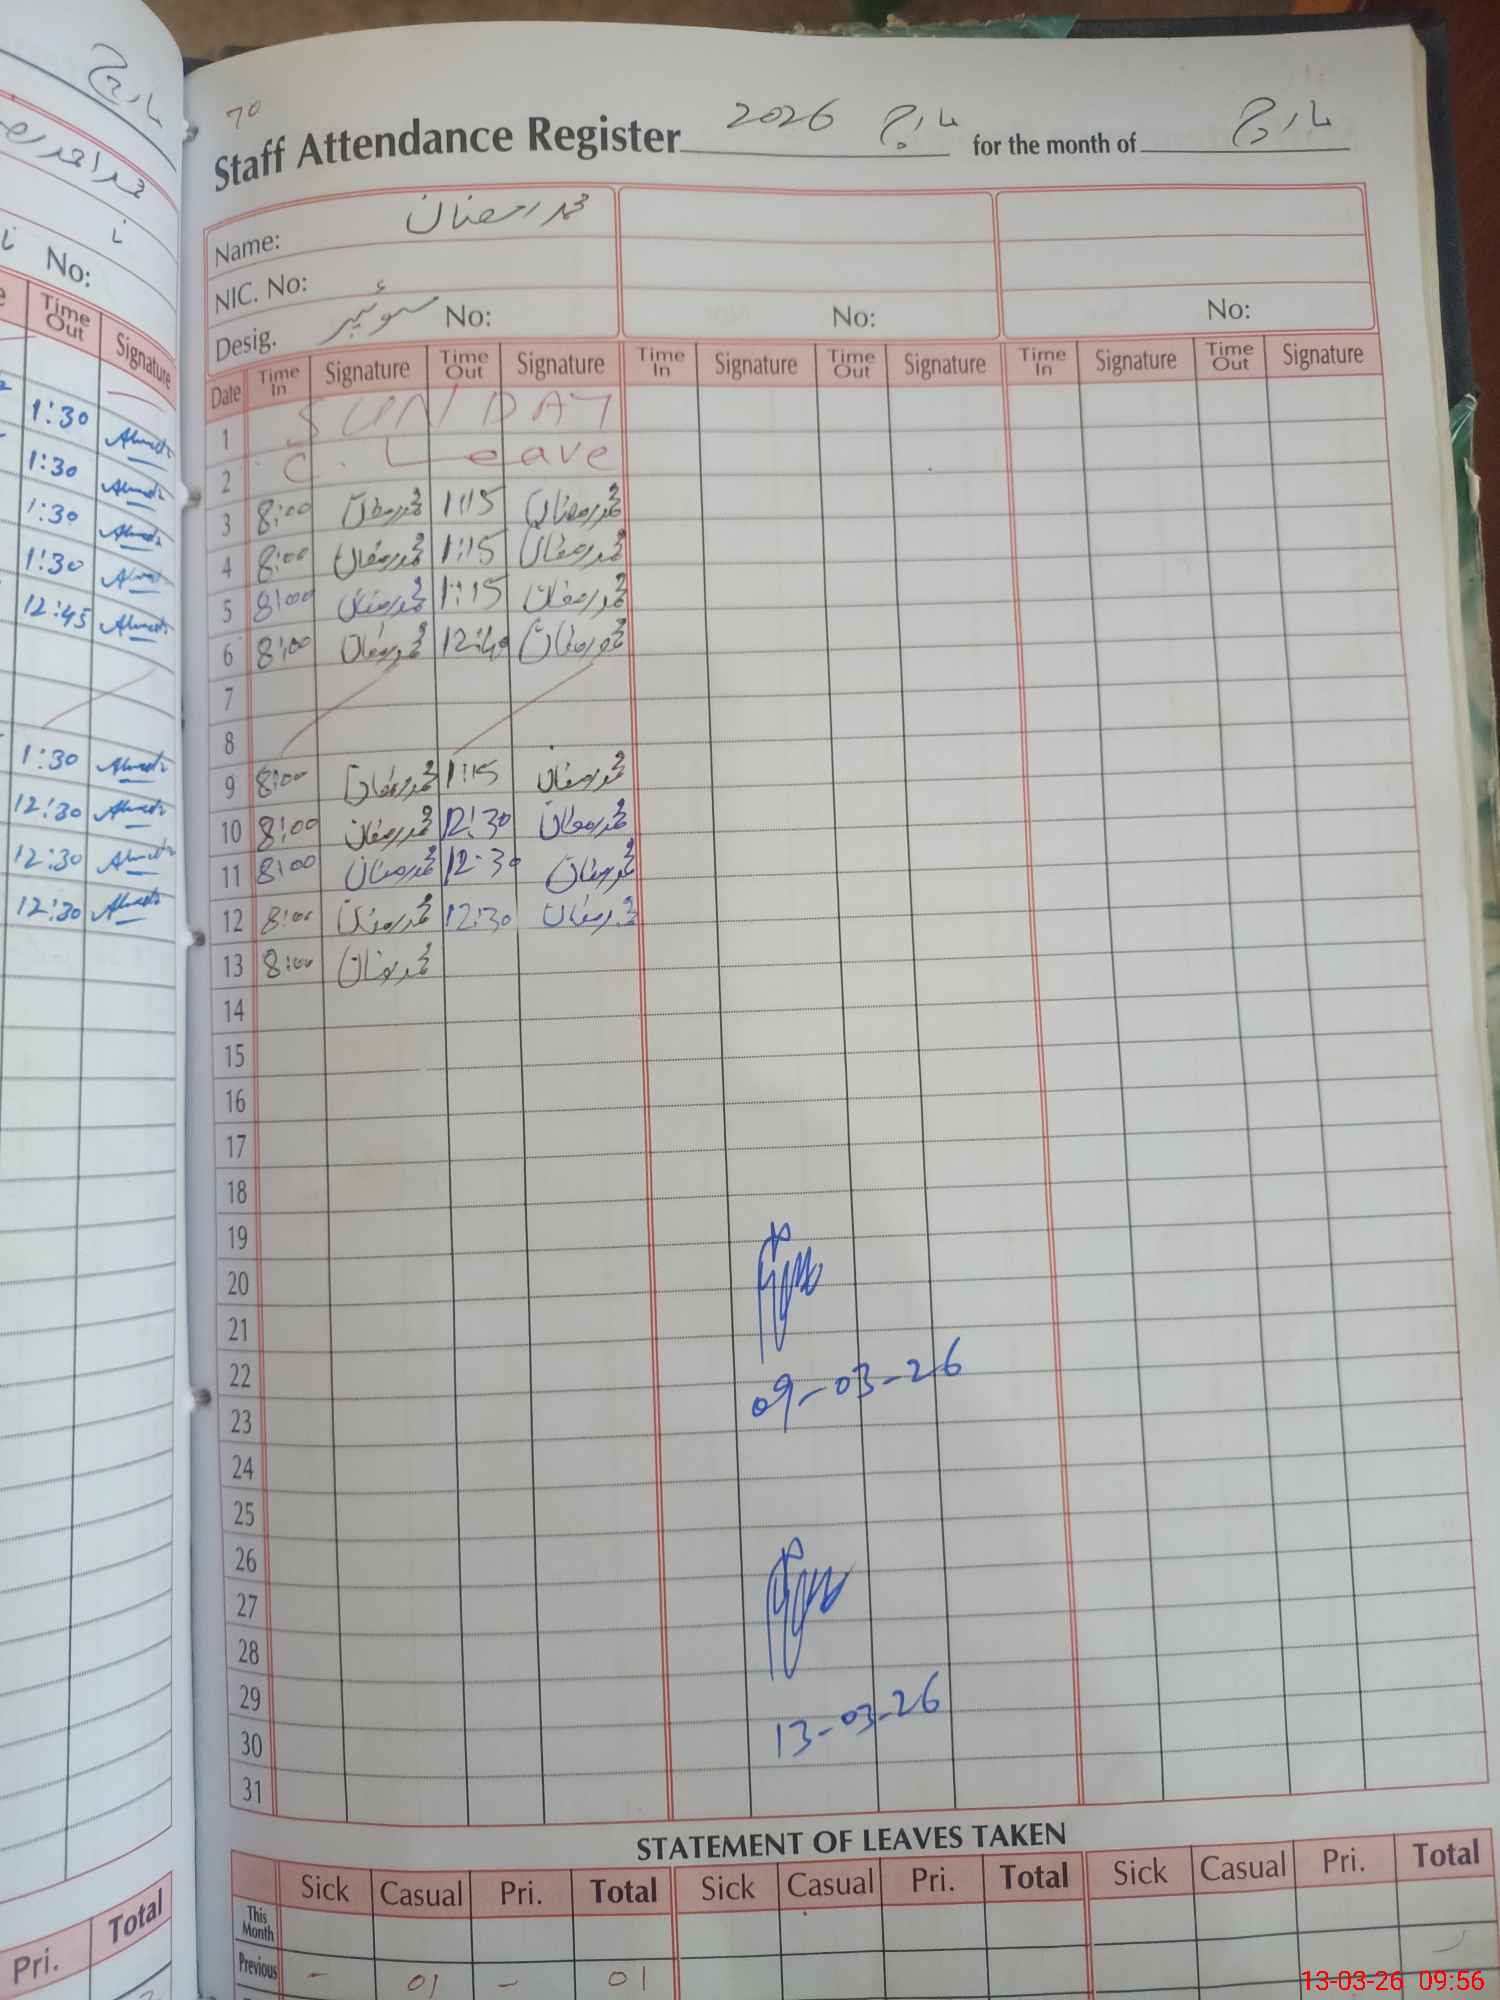 مارچ
محمد احمد
No:
Time Out Signature
1:30 Ahmad
1:30 Ahmad
1:30 Ahmad
1:30 Ahmad
12:45 Ahmad
1:30 Ahmad
12:30 Ahmad
12:30 Ahmad
12:30 Ahmad
Pri. Total
70
Staff Attendance Register 2026 مارچ for the month of مارچ
Name: محمد رمضان
NIC. No:
Desig. سوئیپر No: No: No:
Date Time In Signature Time Out Signature Time In Signature Time Out Signature Time In Signature Time Out Signature
1 SUNDAY
2 C. Leave
3 8:00 محمد رمضان 1:15 محمد رمضان
4 8:00 محمد رمضان 1:15 محمد رمضان
5 8:00 محمد رمضان 1:15 محمد رمضان
6 8:00 محمد رمضان 12:40 محمد رمضان
7
8
9 8:00 محمد رمضان 1:15 محمد رمضان
10 8:00 محمد رمضان 12:30 محمد رمضان
11 8:00 محمد رمضان 12:30 محمد رمضان
12 8:00 محمد رمضان 12:30 محمد رمضان
13 8:00 محمد رمضان
14
15
16
17
18
19
20
21
22
09-03-26
23
24
25
26
27
28
29
13-03-26
30
31
STATEMENT OF LEAVES TAKEN
Sick Casual Pri. Total Sick Casual Pri. Total Sick Casual Pri. Total
This Month
Previous - 01 - 01
13-03-26 09:56